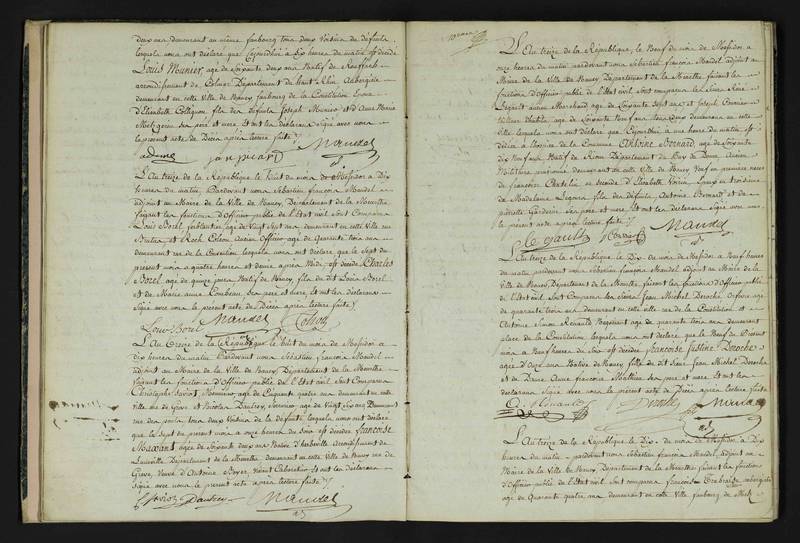 deux ans demeurant au même faubourg tous deux Voisins du défunt
lesquels nous ont déclaré que cejourd'hui à dix heures du matin est décédé
Louis Munier, âgé de soixante deux ans Natif de
arrondissement de Colmar Département du haut Rhin, Aubergiste
demeurant en cette Ville de Nancy faubourg de la Constitution Epoux
d'Elisabeth Collignon, fils des défunts Joseph Munier et d'Anne Marie
ses père et mère. Et ont les déclarans signé avec nous
le présent acte de Décès après lecture faite
adam jean picard Mandel
L'An treize de la République le huit du mois de Messidor à Dix
heures du matin Pardevant nous Sébastien françois Mandel
adjoint au Maire de la Ville de Nancy, Département de la Meurthe
faisant les fonctions d'Officier public de l'Etat civil sont Comparus
Louis Borel, ferblantier, âgé de Vingt Sept ans demeurant en cette Ville rue
et Roch Colson, ancien Officier âgé de Quarante trois ans
demeurant rue de lesquels nous ont déclaré que le Sept du
présent mois à quatre heures et demie après Midi, est décédé Charles
Borel, âgé de quinze jours Natif de Nancy, fils du dit Louis Borel
et de Marie anne ses père et mère, Et ont les déclarans
Signé avec nous le présent acte de Décès après lecture faite
Louis Borel Mandel Colson
L'An treize de la République, le huit du mois de Messidor à
dix heures du matin Pardevant nous Sébastien françois Mandel
adjoint au Maire de la Ville de Nancy Département de la Meurthe
faisant les fonctions d'Officier public de l'Etat civil sont Comparus
Christophe Menuisier, âgé de Cinquante quatre ans demeurant en cette
Ville rue de Grève et Nicolas Dautrey, Serrurier, âgé de Vingt six ans Demeurant
rue des tous deux Voisins de la défunte lesquels nous ont déclaré
que le Sept du présent mois à onze heures du Soir est décédée françoise
Massant âgée de Soixante deux ans Native d'herbéviller arrondissement de
Lunéville Département de la Meurthe demeurant en cette Ville de Nancy rue de
Grève, Veuve d'Antoine Boyer, Et ont les déclarans
Signé avec nous le présent acte de Décès après lecture faite
Dautrey Mandel
L'An treize de la République, le Neuf du mois de Messidor à
onze heures du matin pardevant nous Sébastien françois Mandel, adjoint au
Maire de la Ville de Nancy Département de la Meurthe faisant les
fonctions d'Officier public de l'Etat civil sont comparus les Sieurs
Legault ancien Marchand âgé de Soixante Sept ans et Joseph
âgé de Soixante Neuf ans tous deux demeurant en cette
Ville lesquels nous ont déclaré que Cejourd'hui à une heure du matin est
décédé à l'hospice de la Commune Antoine Bernard, âgé de Soixante
dix Neuf ans Natif de Riom Département du Puy de Dome, ancien
Militaire pensionné demeurant en cette Ville de Nancy Veuf en premières noces
de françoise Chatelin en secondes d'Elisabeth Epoux en troisièmes
de Madelaine fils des défunts Antoine Bernard et de
pierrette ses père et mère, et ont les déclarans Signé avec nous
le présent acte de Décès après lecture faite
le gault Mandel
L'An treize de la République le Dix du mois de Messidor à Neuf heures
du matin, pardevant nous Sébastien françois Mandel, adjoint au Maire de la
Ville de Nancy Département de la Meurthe, faisant les fonctions d'Officier public
de l'Etat civil sont Comparus les Sieurs Jean Michel Deroche, Orfèvre âgé
de quarante trois ans, demeurant en cette Ville rue de la Constitution et
Antoine Renauld Négociant âgé de quarante trois ans demeurant
place de la Constitution, lesquels nous ont déclaré que le Neuf du Présent
mois à Neuf heures du Soir est décédée françoise Justine Deroche
âgée d'Onze ans Native de Nancy, fille du dit Sieur Jean Michel Deroche
et de Dame Anne françoise Mathieu ses père et mère, Et ont les
déclarans Signé avec nous le présent acte de Décès après lecture faite
Mandel
L'An treize de la République le Dix du mois de Messidor, à Dix
heures du matin pardevant nous Sébastien françois Mandel, adjoint au
Maire de la Ville de Nancy, Département de la Meurthe faisant les fonctions
d'Officier public de l'Etat civil, sont comparus françois aubergiste
âgé de Quarante quatre ans, demeurant en cette Ville faubourg de Metz